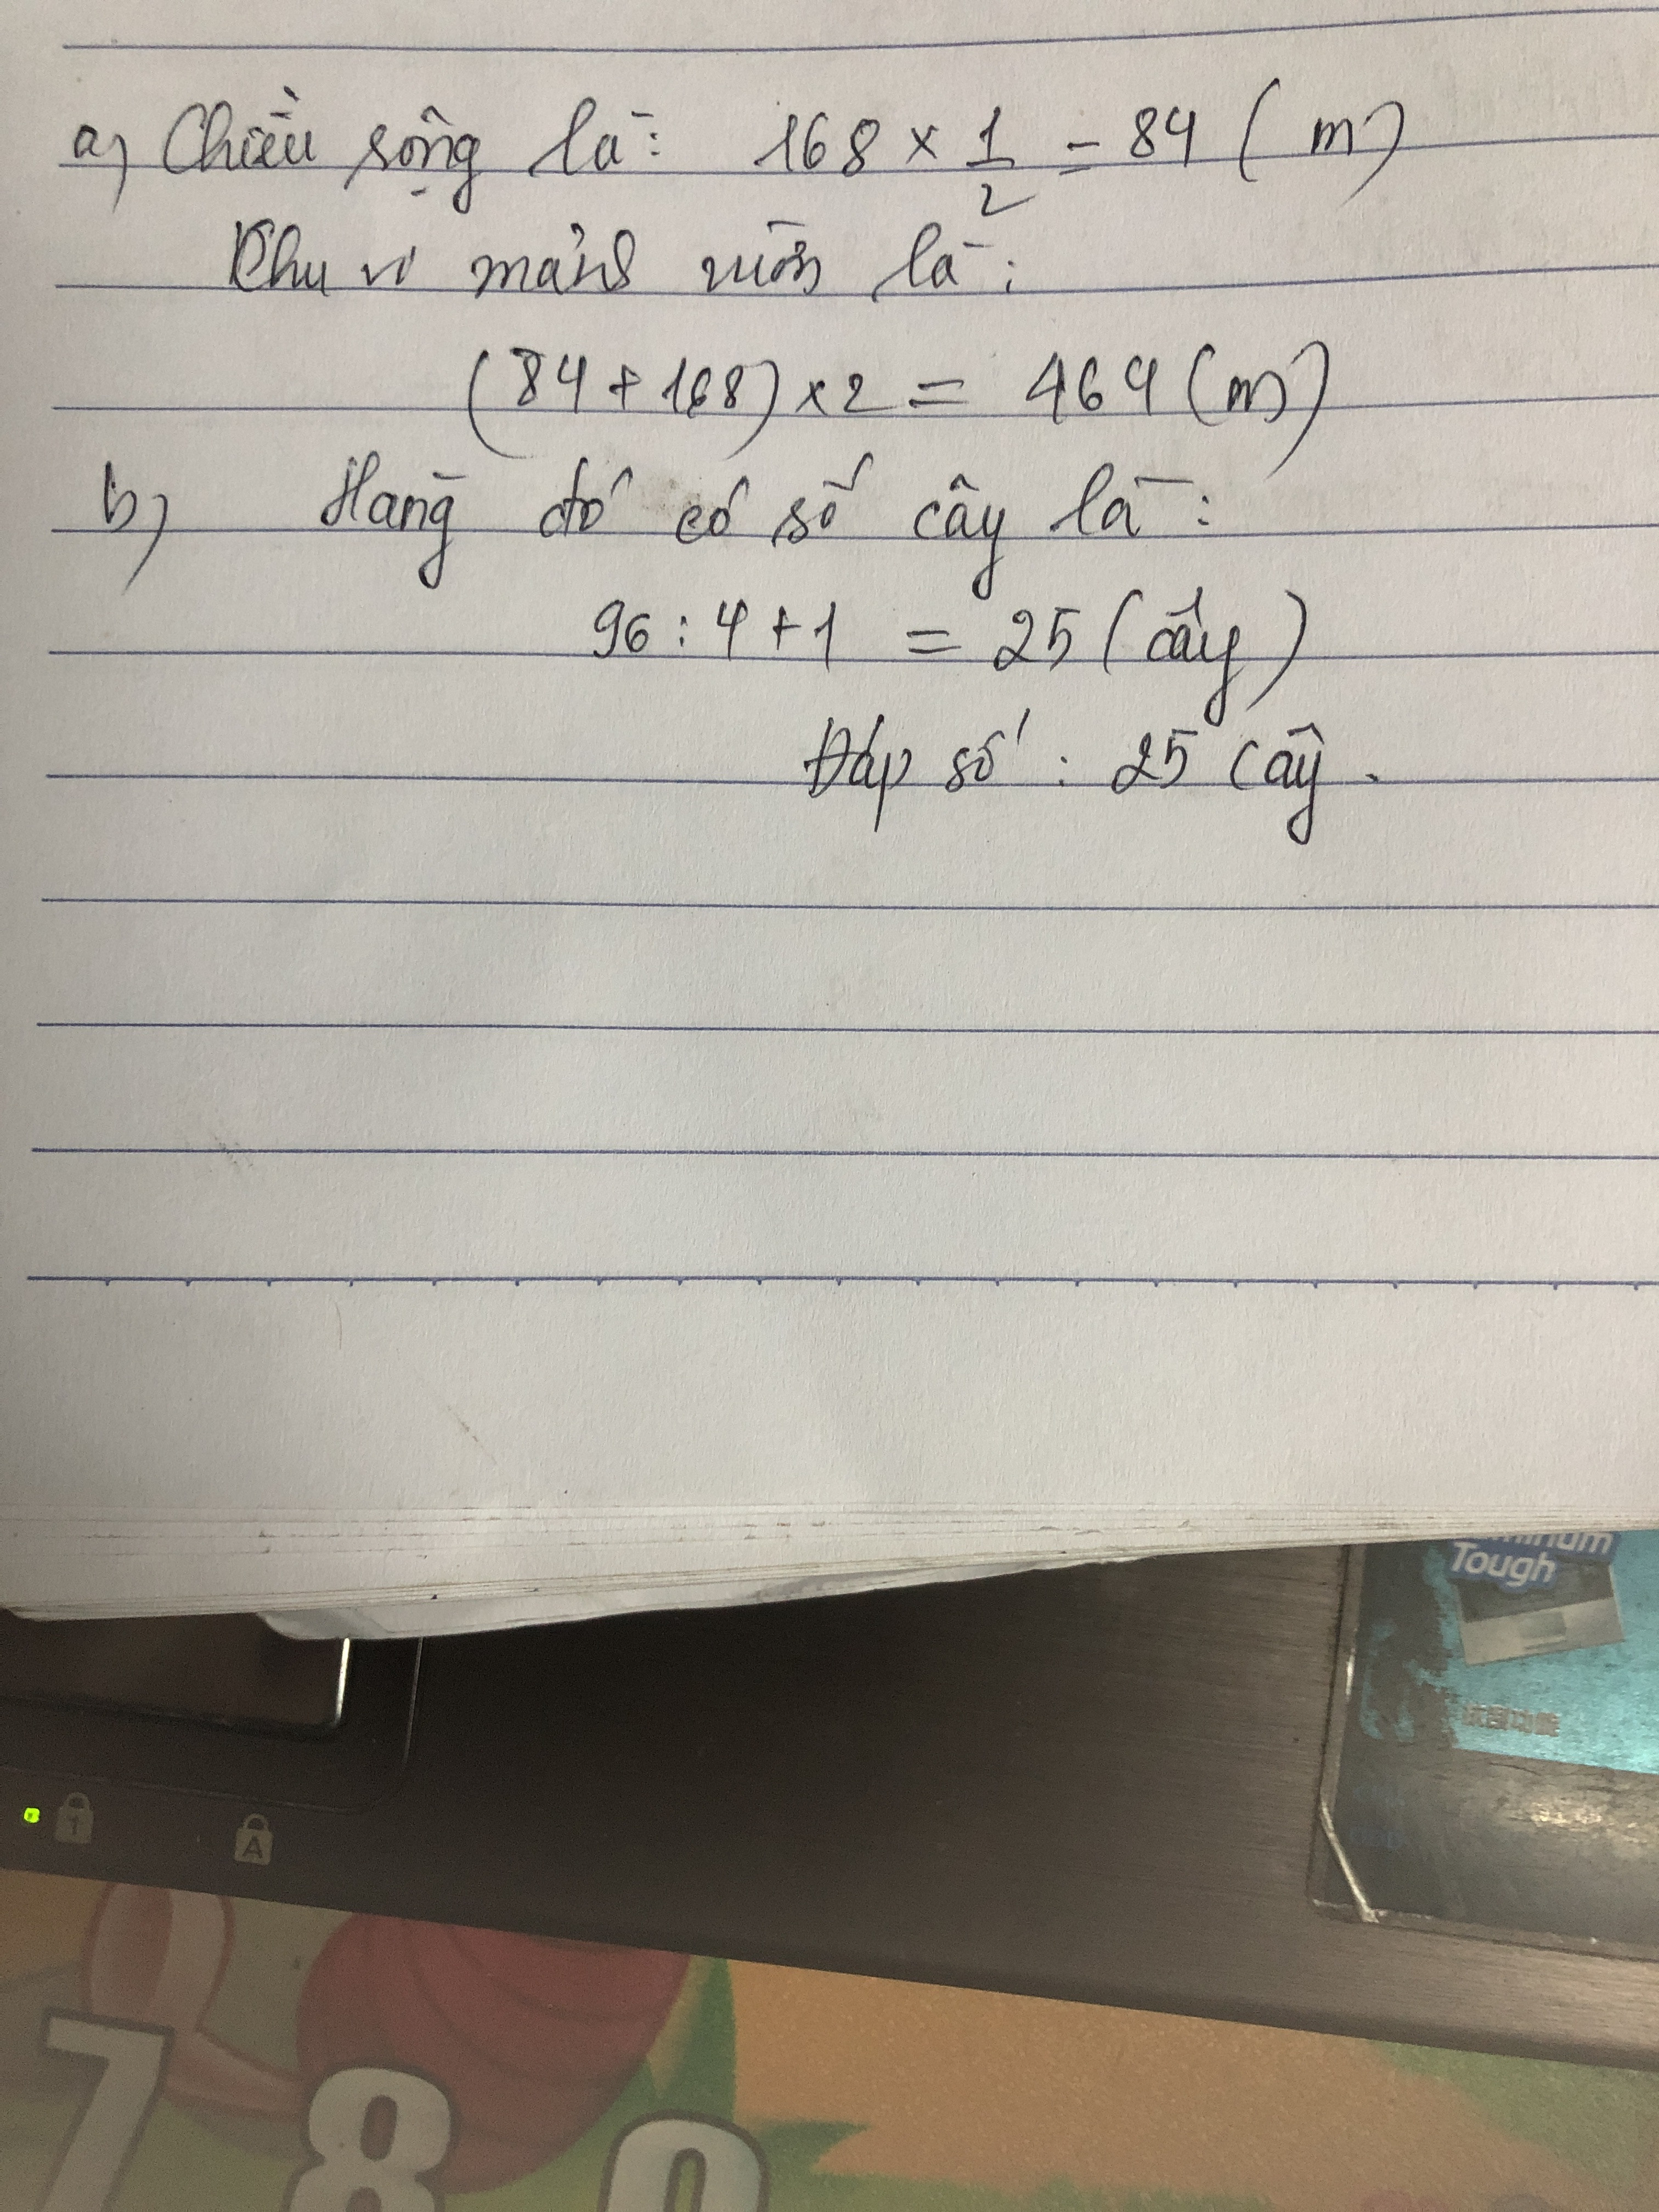 a) Chiều rộng là: 168 × 1/2 = 84 (m)
Chu vi mảnh vườn là:
(84 + 168) × 2 = 464 (m)
b) Hàng đó có số cây là:
96 : 4 + 1 = 25 (cây)
Đáp số: 25 cây.
Tough
1
A
7 8